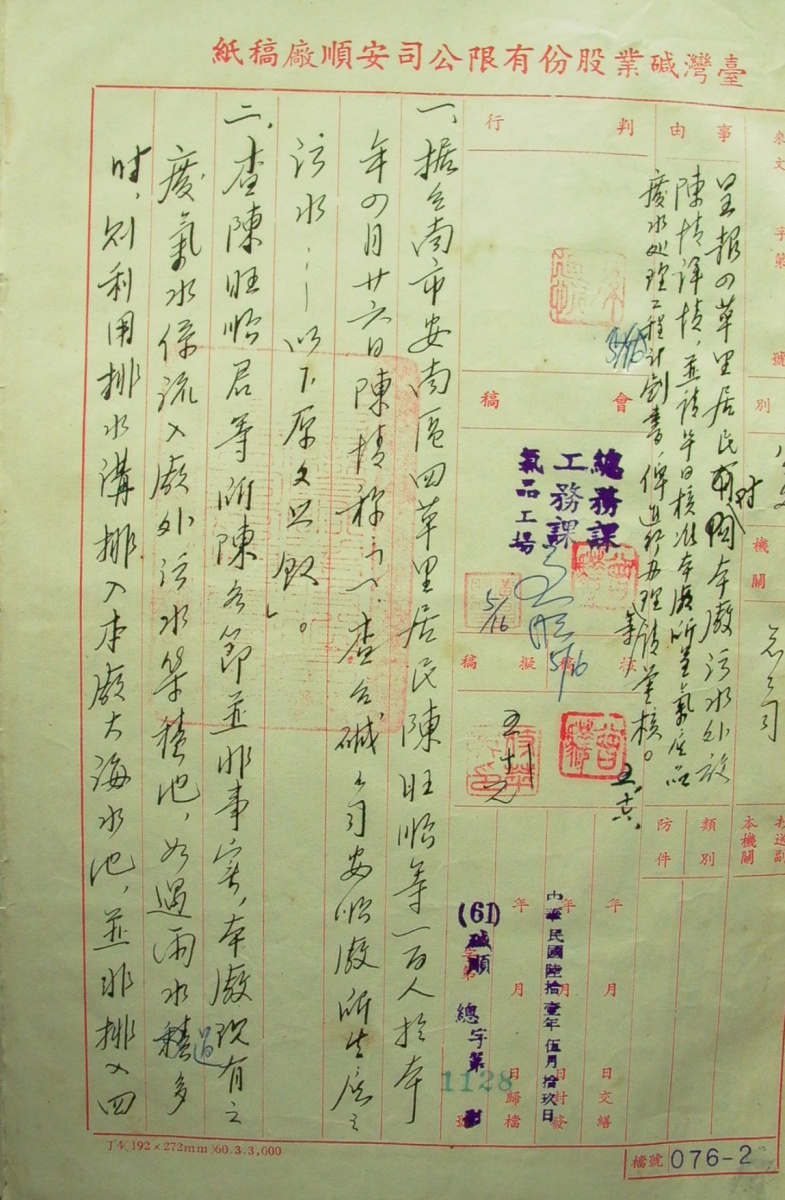 臺灣碱業股份有限公司安順廠稿紙
來文 字第 號
別
機關
公司
抄送副本機關
事由
呈報四草里居民對本廠污水外放
陳情詳情，並請早日核准本廠所呈氯產品
廢水處理工程計劃書，俾進行辦理請鑒核。
類別
附件
判行
會稿
總務課
工務課
氯品工場
5/16
5/16
擬稿
五、十六、
年 月 日交繕
年 月 日封發
年 月 日歸檔
中華民國陸拾壹年伍月拾玖日
(61)碱順總字第 1128 號
一、據台南市安南區四草里居民陳旺順等一百人於本
年四月廿六日陳情稱：「一、查台碱公司安順廠所生產之
污水……以下原文照敘」。
二、查陳旺順君等所陳各節並非事實，本廠現有之
廢氯水係流入廠外污水集積池，如遇雨水積過多
時，則利用排水溝排入本廠大海水池，並非排入四
J4(192×272mm)60.3.3,000
檔號 076-2